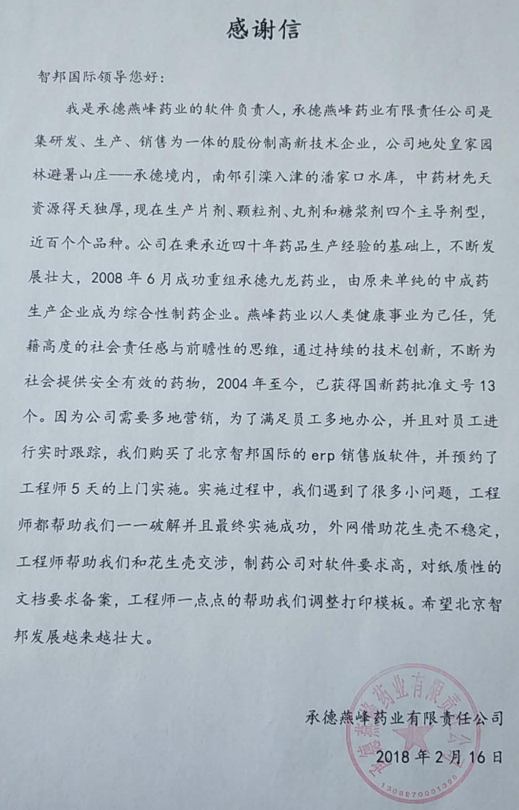 感谢信
智邦国际领导您好：
我是承德燕峰药业的软件负责人，承德燕峰药业有限责任公司是
集研发、生产、销售为一体的股份制高新技术企业，公司地处皇家园
林避暑山庄---承德境内，南邻引滦入津的潘家口水库，中药材先天
资源得天独厚，现在生产片剂、颗粒剂、丸剂和糖浆剂四个主导剂型，
近百个个品种。公司在秉承近四十年药品生产经验的基础上，不断发
展壮大，2008年6月成功重组承德九龙药业，由原来单纯的中成药
生产企业成为综合性制药企业。燕峰药业以人类健康事业为己任，凭
藉高度的社会责任感与前瞻性的思维，通过持续的技术创新，不断为
社会提供安全有效的药物，2004年至今，已获得国新药批准文号13
个。因为公司需要多地营销，为了满足员工多地办公，并且对员工进
行实时跟踪，我们购买了北京智邦国际的erp销售版软件，并预约了
工程师5天的上门实施。实施过程中，我们遇到了很多小问题，工程
师都帮助我们一一破解并且最终实施成功，外网借助花生壳不稳定，
工程师帮助我们和花生壳交涉，制药公司对软件要求高，对纸质性的
文档要求备案，工程师一点点的帮助我们调整打印模板。希望北京智
邦发展越来越壮大。
承德燕峰药业有限责任公司
2018年2月16日